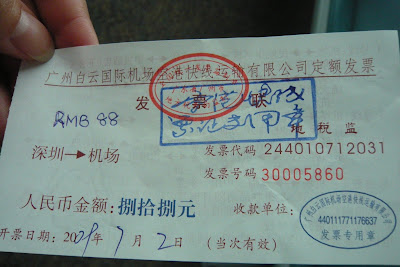 广州白云国际机场空港快线运输有限公司定额发票
发票联
RMB 88
地税监
深圳→机场
发票代码 244010712031
发票号码 30005860
人民币金额: 捌拾捌元
收款单位:
广州白云国际机场空港快线运输有限公司
440111771176637
发票专用章
开票日期: 2009年7月2日 (当次有效)